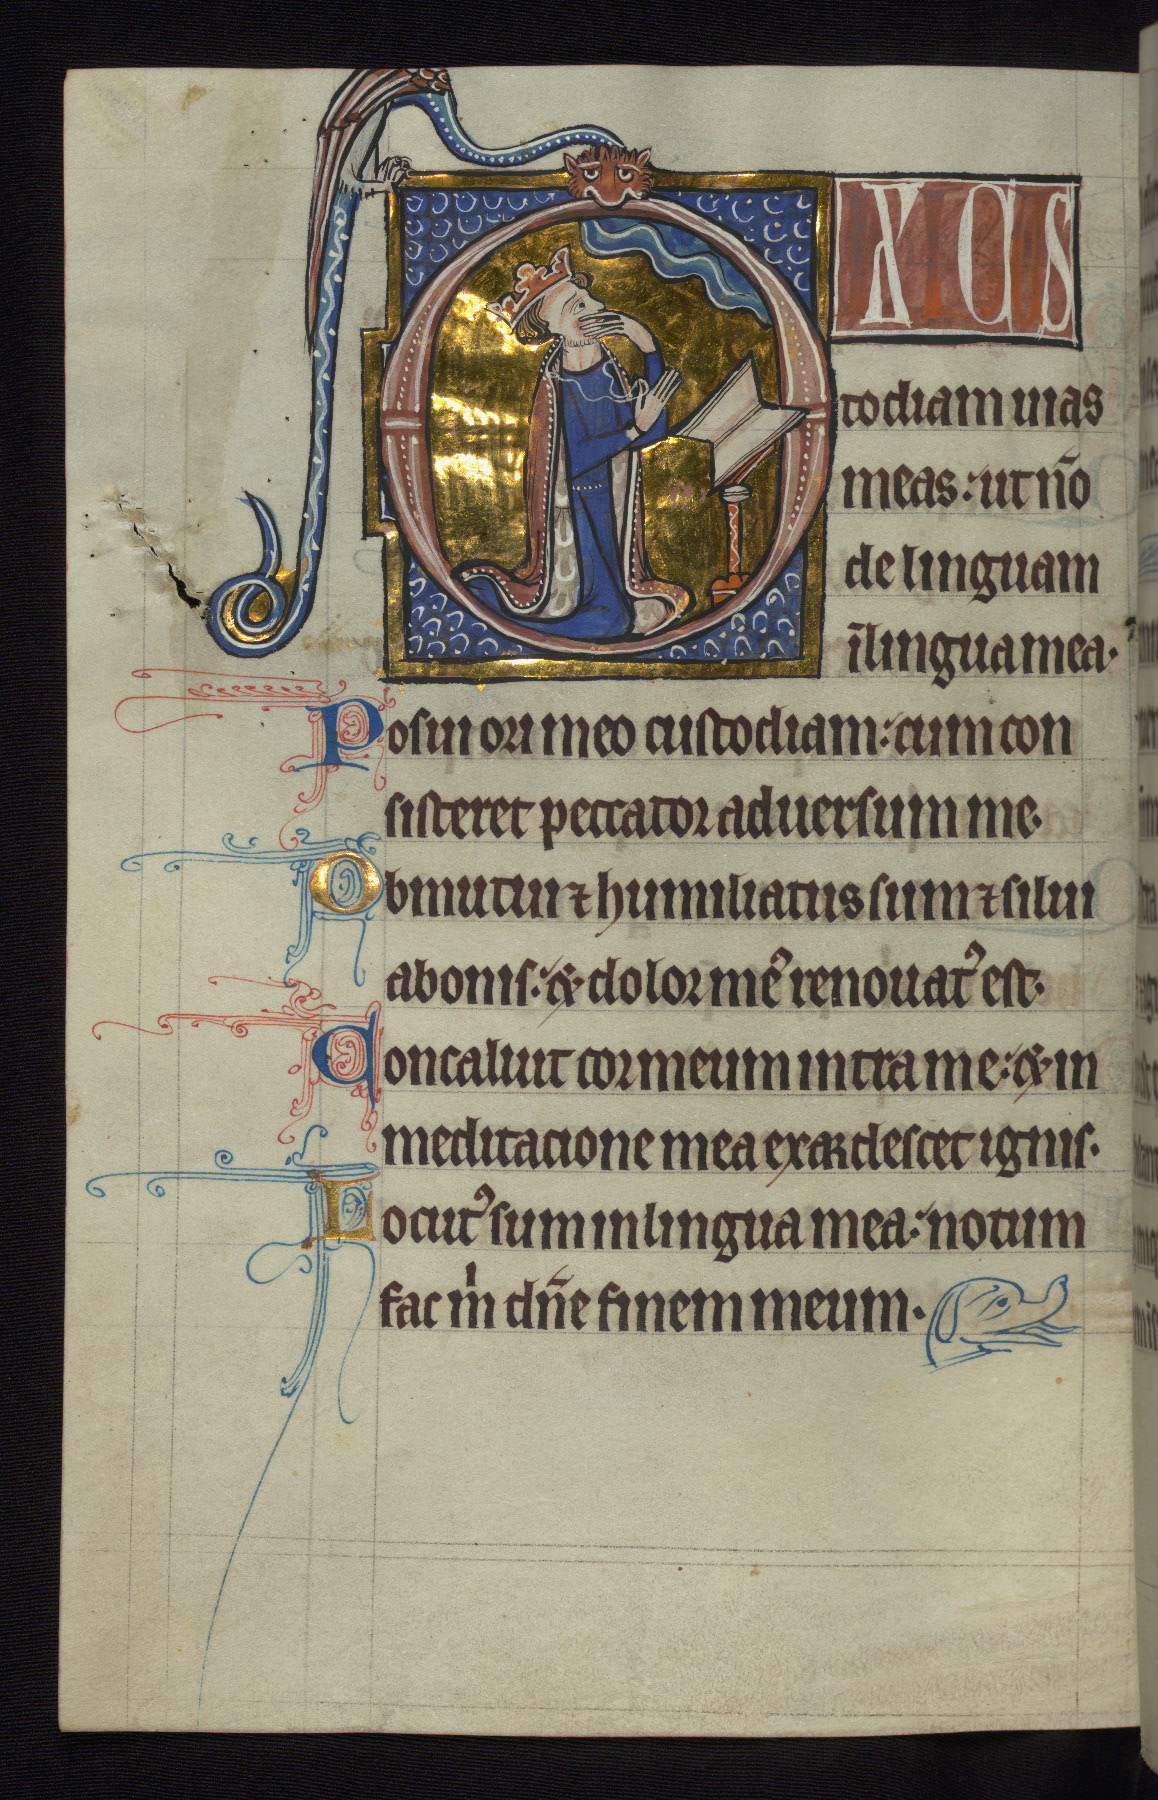 DX CUS
todiam uias
meas: ut nō
de linguam
ī lingua mea.
Posui ori meo custodiam: cum con
sisteret peccator aduersum me.
Obmutui ⁊ humiliatus sum ⁊ silui
a bonis: & dolor meꝰ renouatꝰ est.
Concaluit cor meum intra me: & in
meditacione mea exardescet ignis.
Locutꝰ sum in lingua mea: notum
fac mͥ dñe finem meum.